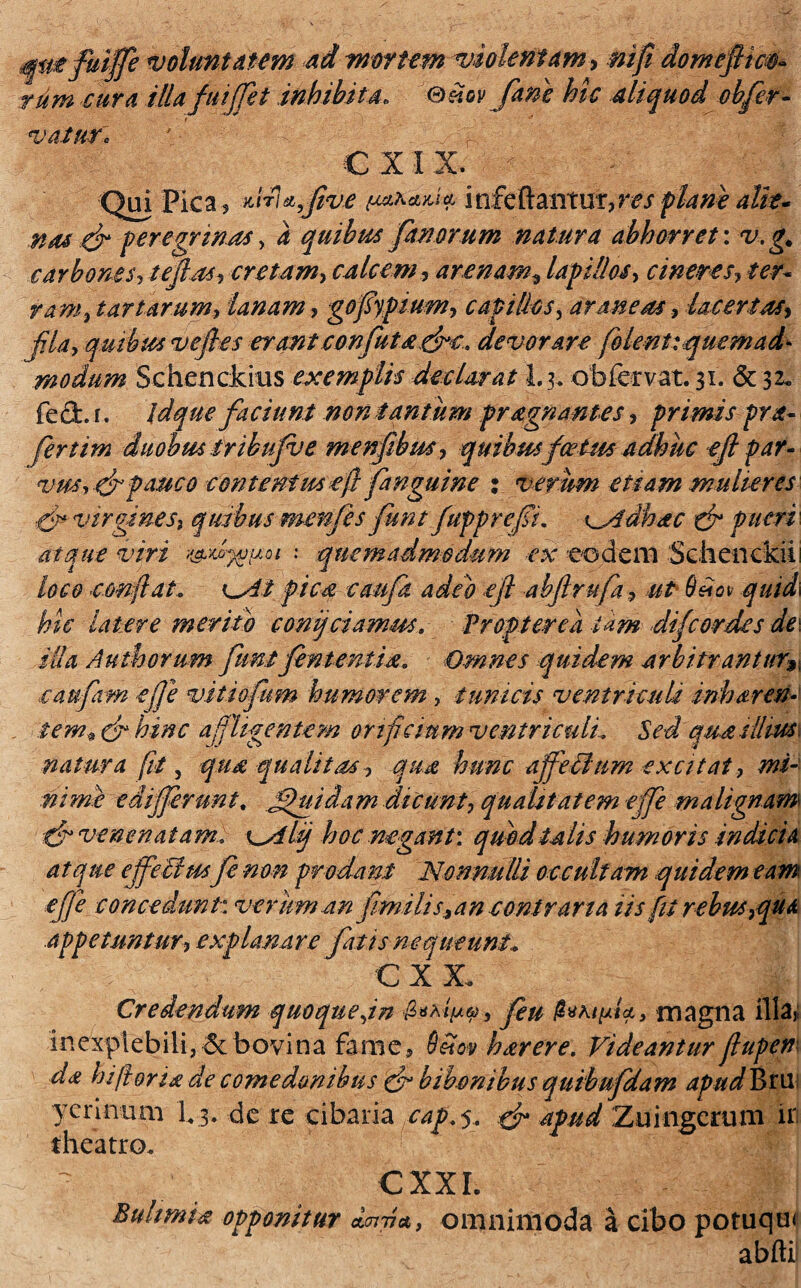 que fuiſſe voluntatem ad mortem violentam, niſi domeſtico-
rum cura illa fuiſſet inhibita. Θεῖον ſane hîc aliquod obſer-
vatur.
CXIX.
Qui Pica, κίτ͂α, ſive μαλακία infeſtantur, res planè alie-
nas & peregrinas, à quibus ſanorum natura abhorret: v. g.
carbones, teſtas, cretam, calcem, arenam, lapillos, cineres, ter-
ram, tartarum, lanam, goſſypium, capillos, araneas, lacertas,
fila, quibus veſtes erant conſutæ &c. devorare ſolent: quemad-
modum Schenckius exemplis declarat l. 3. obſervat. 31. & 32.
ſect. 1. Idque faciunt non tantùm prægnantes, primis præ-
ſertim duobus tribuſve menſibus, quibus fœtus adhuc eſt par-
vus, & pauco contentus eſt ſanguine : verùm etiam mulieres
& virgines, quibus menſes ſunt ſuppreſſi. Adhæc & pueri
atque viri : quemadmodum ex eodem Schenckii
loco conſtat. At picæ cauſa adeò eſt abſtruſa, ut θεῖον quid
hîc latere meritò conijciamus. Propterea tam diſcordes de
illa Authorum ſunt ſententiæ. Omnes quidem arbitrantur,
cauſam eſſe vitioſum humorem, tunicis ventriculi inhæren-
tem, & hinc affligentem orificium ventriculi. Sed quæ illius
natura ſit, quæ qualitas, quæ hunc affectum excitat, mi-
nimè ediſſerunt. Quidam dicunt, qualitatem eſſe malignam
& venenatam. Alij hoc negant: quòd talis humoris indicia
atque effectus ſe non prodant Nonnulli occultam quidem eam
eſſe concedunt: verùm an ſimilis, an contraria iis ſit rebus, quæ
appetuntur, explanare ſatis nequeunt.
CXX.
Credendum quoque, in βουλίμῳ, ſeu βουλιμίᾳ, magna illa,
inexplebili, & bovina fame, θεῖον hærere. Videantur ſtupen
dæ hiſtoriæ de comedonibus & bibonibus quibuſdam apud Bru
yerinum l. 3. de re cibaria cap. 5. & apud Zuingerum in
theatro.
CXXI.
Bulimiæ opponitur ἀσιτία, omnimoda à cibo potuque
abſti